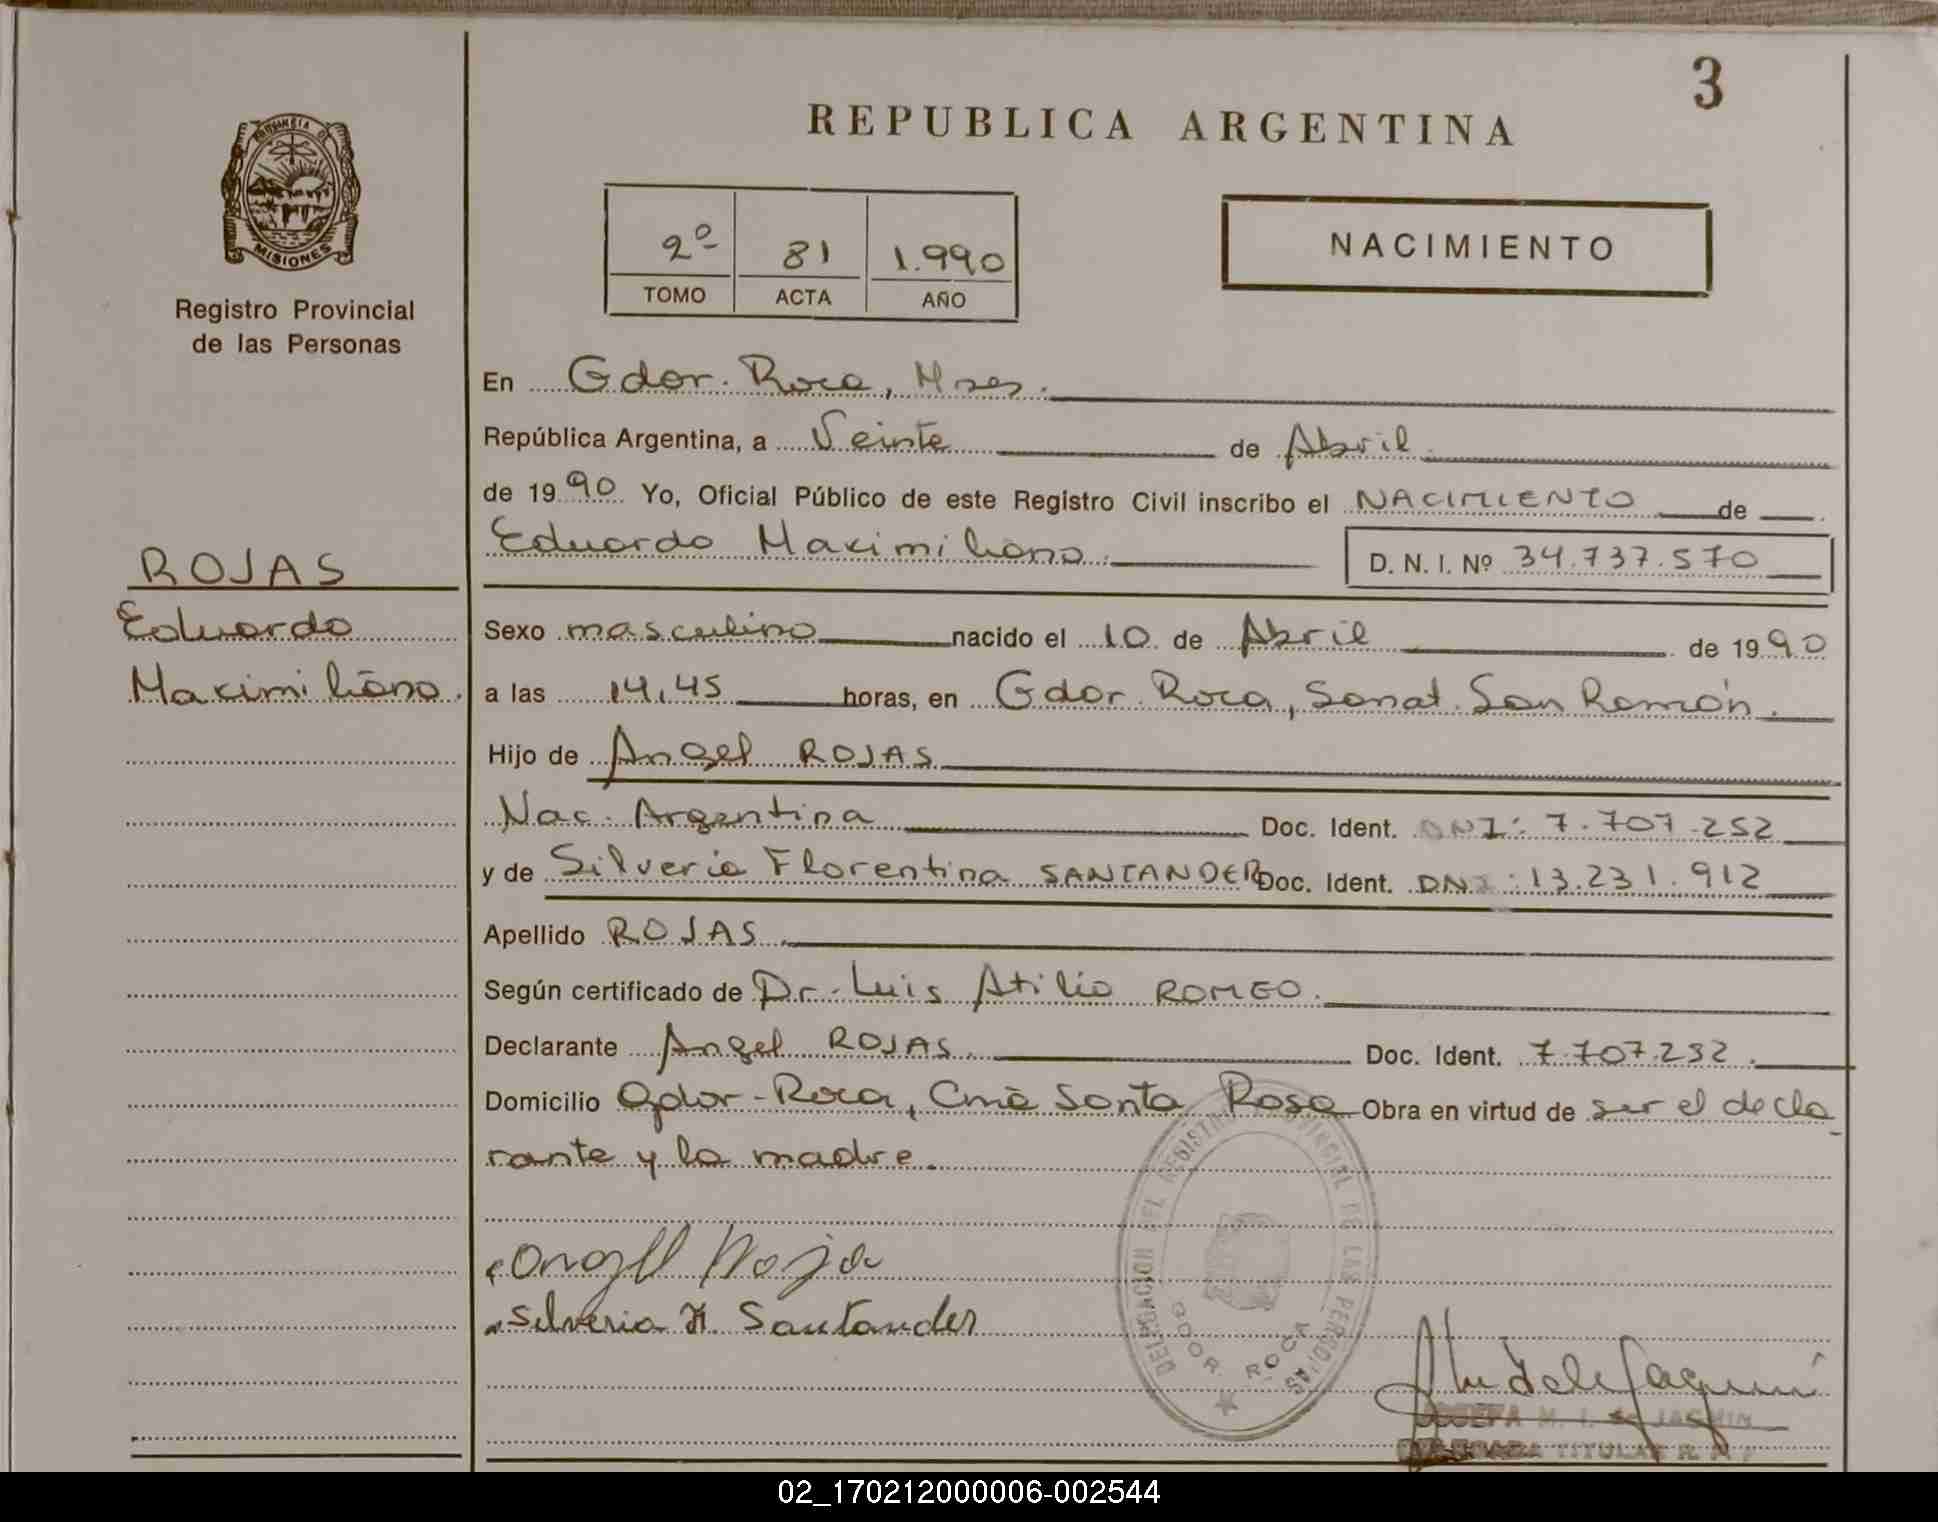 3
REPUBLICA ARGENTINA
PROVINCIA DE
MISIONES
Registro Provincial
de las Personas
2º 81 1.990
TOMO ACTA AÑO
NACIMIENTO
En Gdor. Roca, Mnes.
República Argentina, a Veinte de Abril
de 1990 Yo, Oficial Público de este Registro Civil inscribo el NACIMIENTO de
Eduardo Maximiliano. D. N. I. Nº 34.737.570
ROJAS
Eduardo
Maximiliano.
Sexo masculino nacido el 10 de Abril de 1990
a las 14,45 horas, en Gdor. Roca, Sanat. San Ramón.
Hijo de Angel ROJAS
Nac. Argentina Doc. Ident. DNI: 7.707.252
y de Silveria Florentina SANTANDER Doc. Ident. DNI: 13.231.912
Apellido ROJAS
Según certificado de Dr. Luis Atilio ROMEO.
Declarante Angel ROJAS. Doc. Ident. 7.707.252.
Domicilio Gdor. Roca, Cnia Santa Rosa Obra en virtud de ser el decla
rante y la madre.
Angel Roja
Silveria F. Santander
DELEGACION DEL REGISTRO PROVINCIAL DE LAS PERSONAS
GDOR. ROCA
JOSEFA M. I. de JACQUIN
DELEGADA TITULAR R. P. P.
02_170212000006-002544